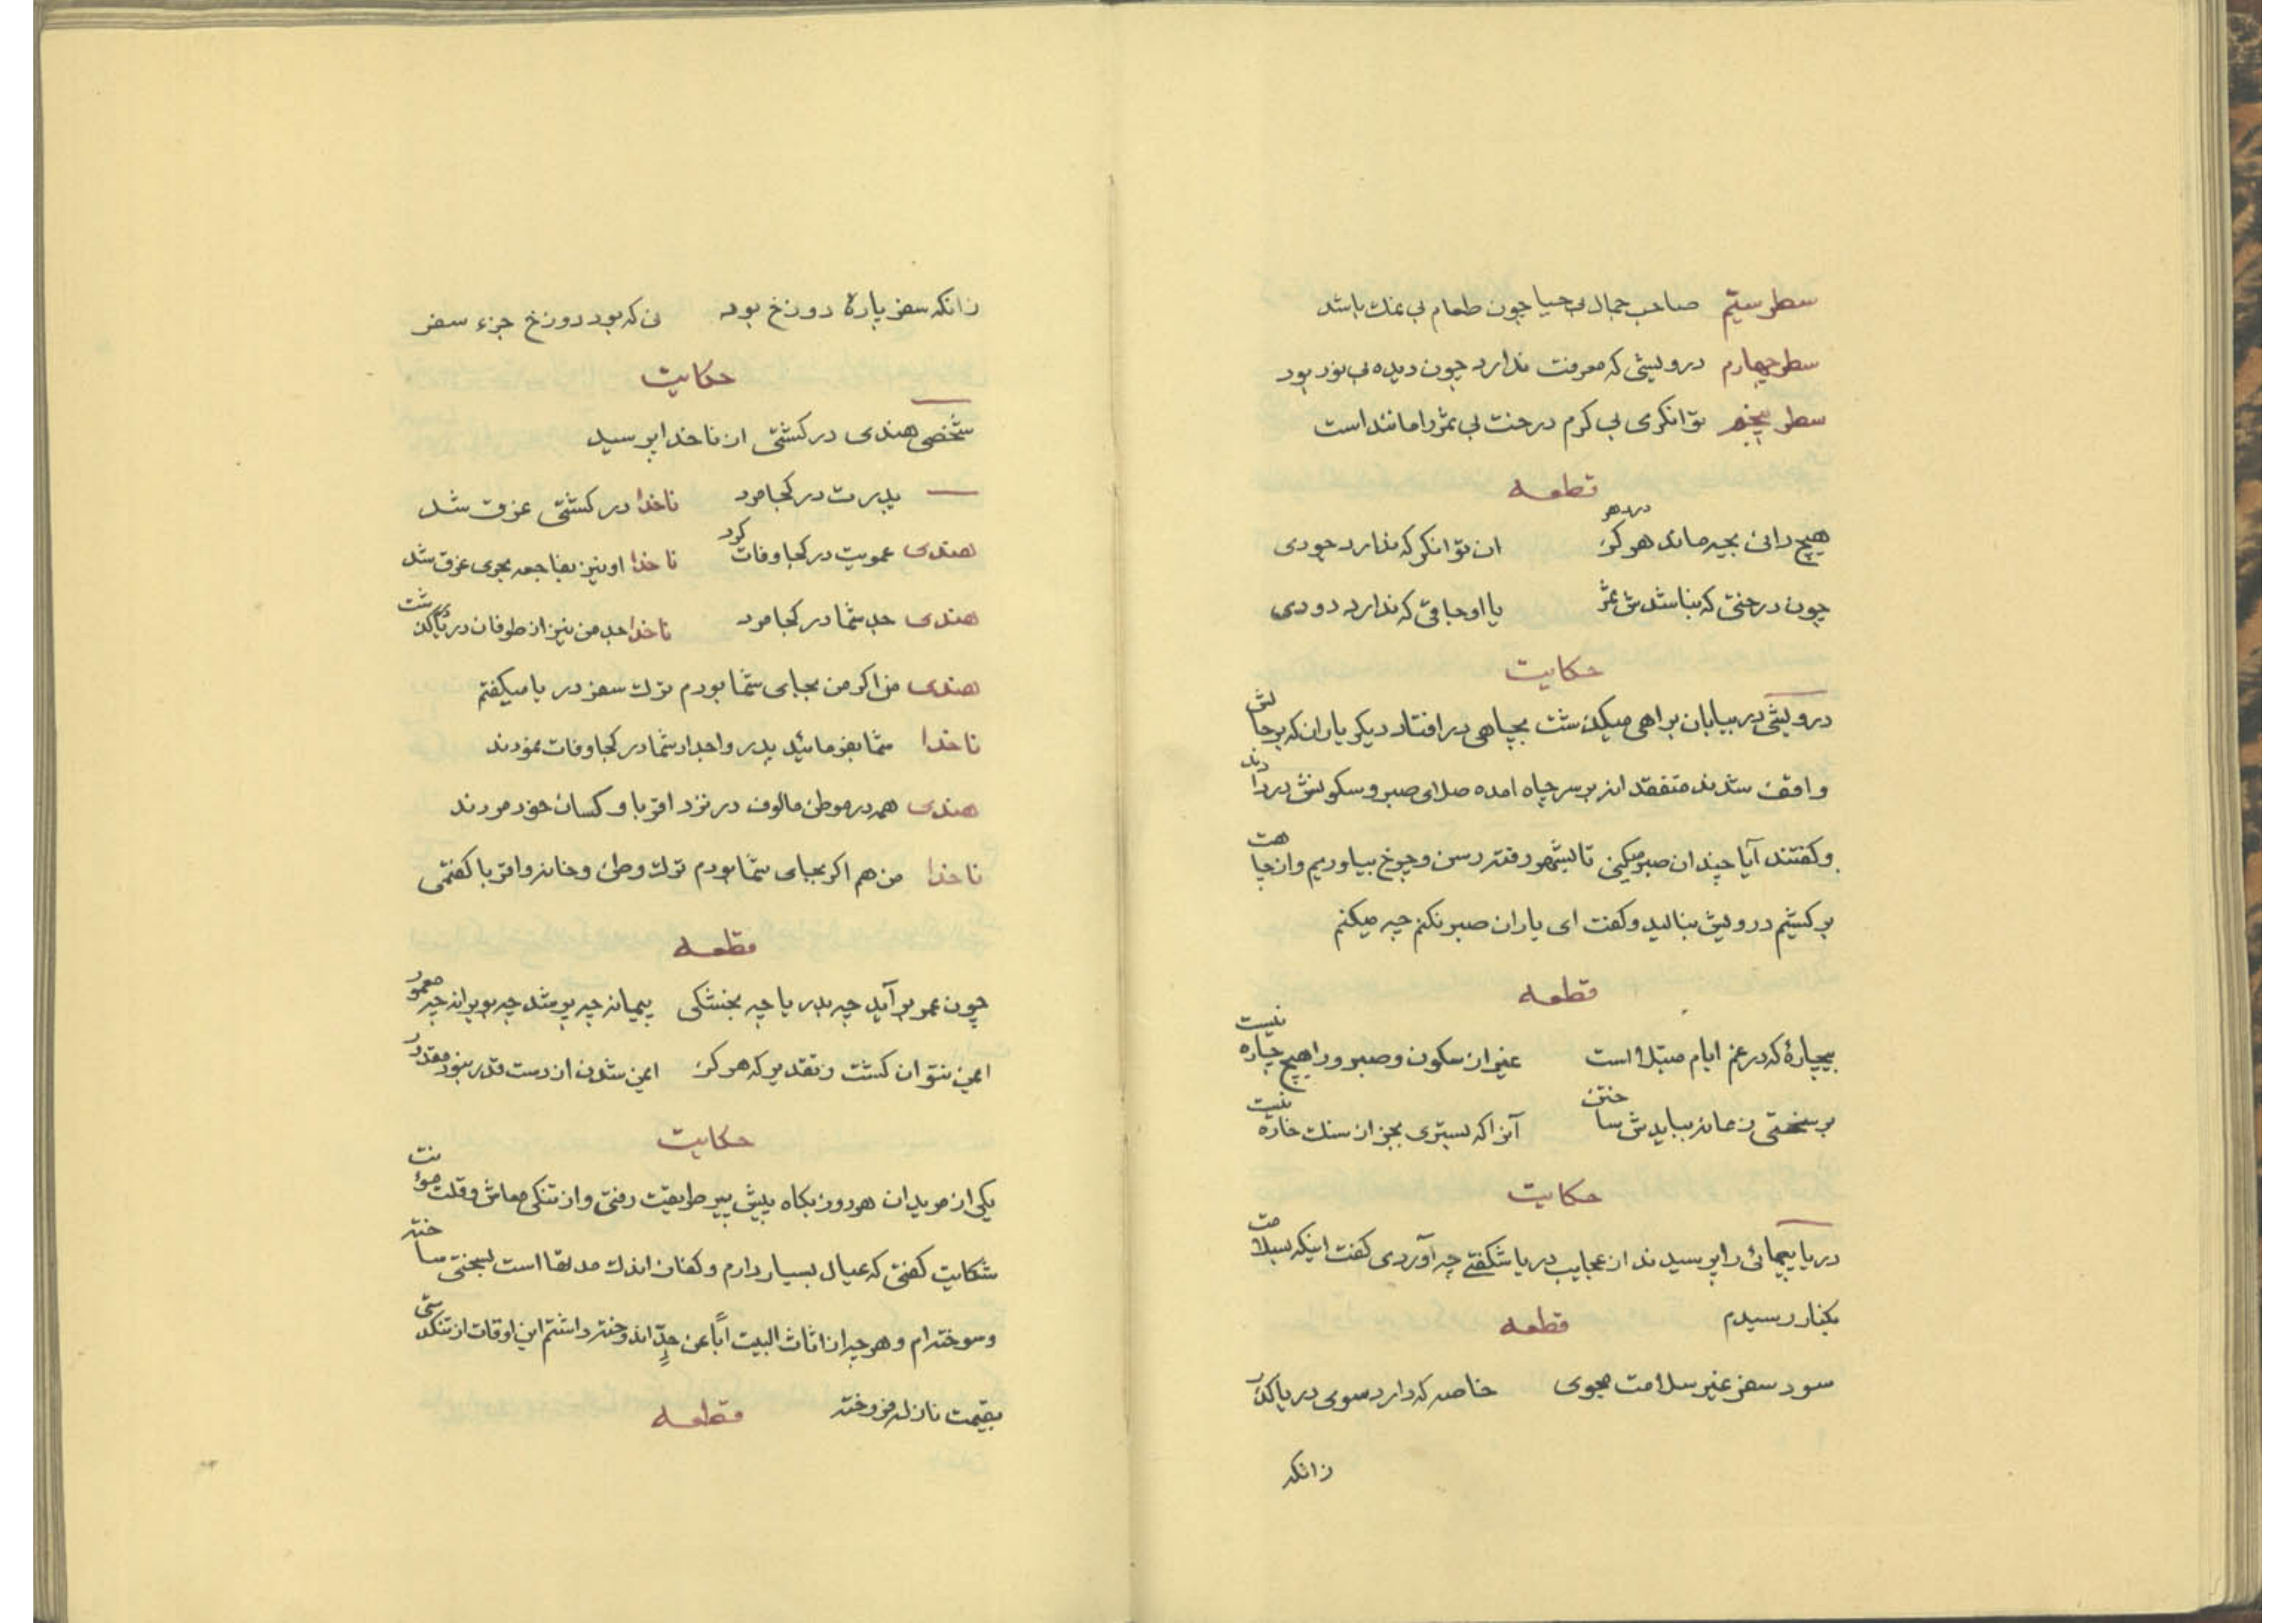 سطر سیّم صاحب جمال بی حیا چون طعام بی نمك باشد
سطر چهارم درویشی که معرفت ندارد چون دیده بی نور بود
سطر پنجم توانکری بی کرم درخت بی ثمر را مانند است
قطعه
هیچ دانی بچه ماند در دهر هرکز ان توانکر که ندارد جودی
چون درختی که نباشدش ثمر یا اوجاقی که ندارد دودی
حکایت
درویشی در بیابان براهی میکذشت بچاهی در افتاد دیکر یاران که بر حالش
واقف شدند متفقد انه بر سر چاه امده صلای صبر و سکونش در دادند
وکفتند آیا چندان صبر میکنی تا بشهر رفته رسن و چرخ بیاوریم و از چاهت
بر کشیم درویش بنالید و کفت ای یاران صبر نکنم چه میکنم
قطعه
بیچارهٔ که در غم ایام مبتلا است غیر از سکون و صبر ورا هیچ چاره نیست
بر سختی زمانه ببایدش ساختن آنرا که بستری بجز از سنك خاره نیست
حکایت
دریا پیمائی را پرسیدند از عجایب دریا شکفتی چه آوردی کفت اینکه بسلامت
بکنار رسیدم قطعه
سود سفر غیر سلامت مجوی خاصه که دارد سوی دریا کذر
زانکه
زانکه سفر پارهٔ دوزخ بود نی که بود دوزخ جزء سفر
حکایت
شخصی هندی در کشتی از ناخدا پرسید
پدرت در کجا مرد ناخدا در کشتی غرق شد
هندی عمویت در کجا وفات کرد ناخدا او نیز بفاجعه بحری غرق شد
هندی جد شما در کجا مرد ناخدا جد من نیز از طوفان دریا در کذشت
هندی من اکر من بجای شما بودم ترك سفر دریا میکفتم
ناخدا شما بفرمائید پدر و اجداد شما در کجا وفات نمودند
هندی همه در موطن مالوف در نزد اقربا و کسان خود مردند
ناخدا من هم اکر بجای شما بودم ترك وطن و خانه و اقربا کفتمی
قطعه
چون عمر بر آید چه بدریا چه بخشکی پیمانه چه پر شد چه بویرانه چه معمور
ایمن نتوان کشت ز تقدیر که هرکز ایمن شدن از دست قدر نبود مقدور
حکایت
یکی از مریدان هر روز بکاه پیش پیر طریقت رفتی و از تنکی معاش و قلت مؤنت
شکایت کفتی که عیال بسیار دارم و کفاف اندك مدتها است بسختی ساخته
و سوخته ام و هر چه از اثاث البیت اباً عن جدٍّ اندوخته داشتم این اوقات از تنکدستی
بقیمت نازله فروخته قطعه